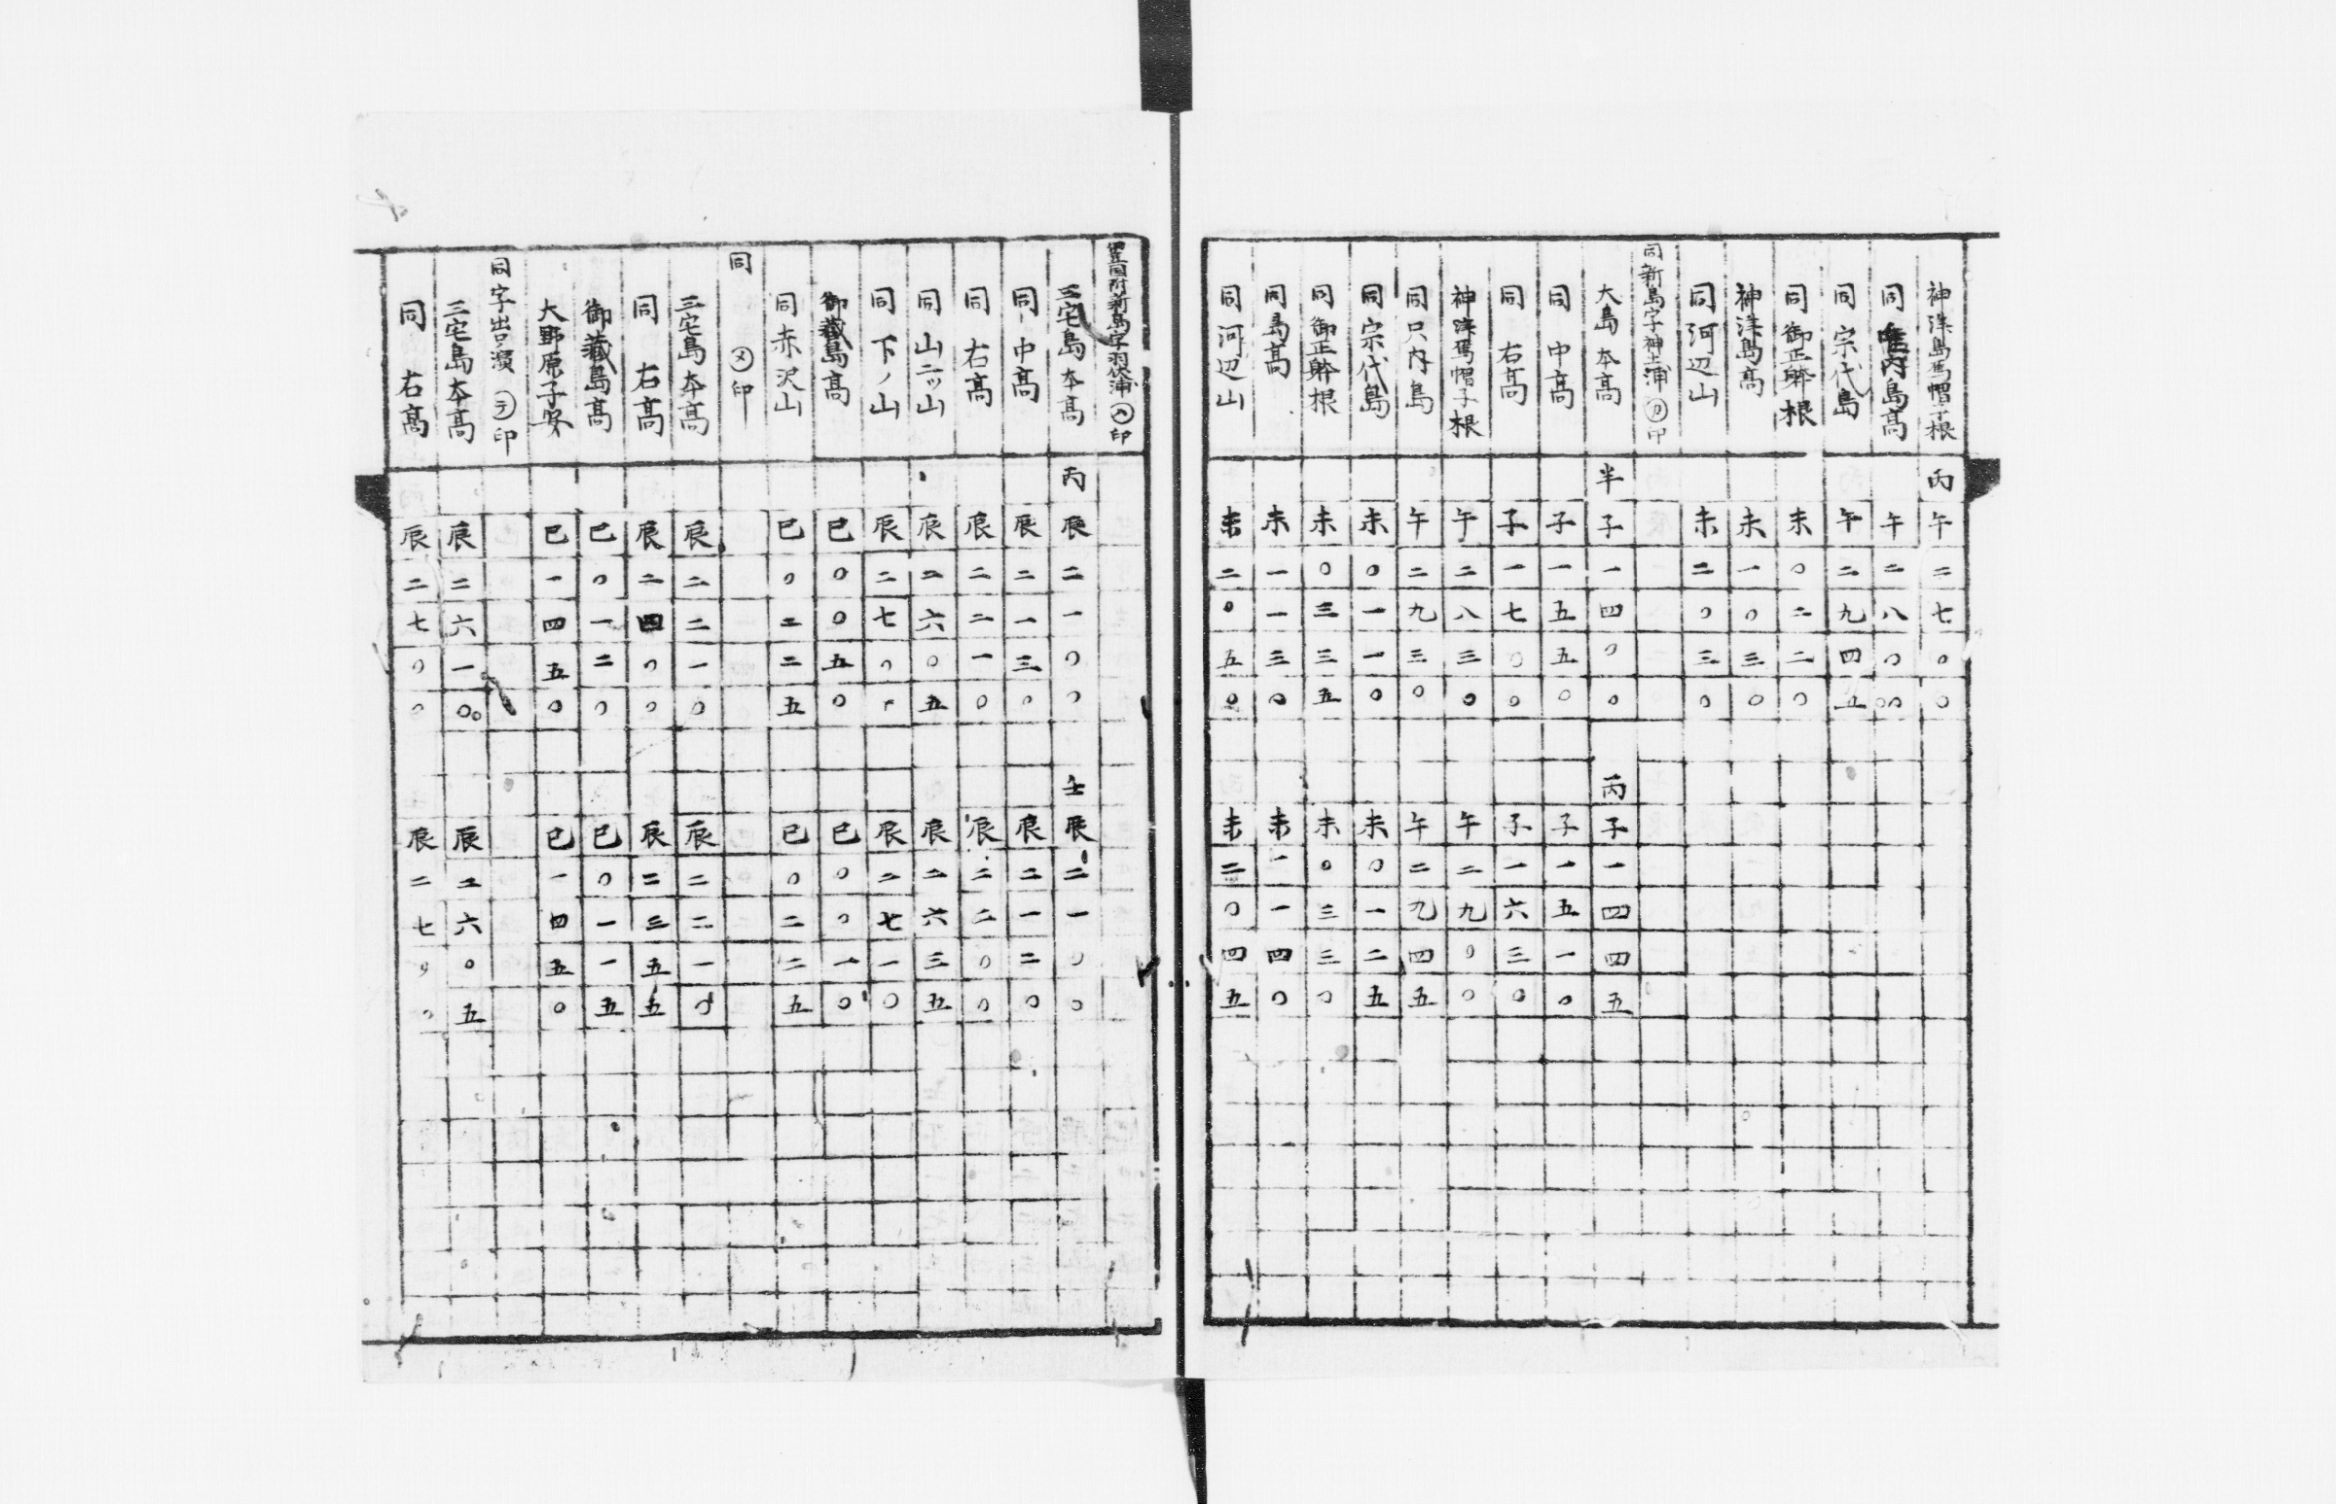 神津島烏帽子根 丙午二七〇〇
同 唯内島高 午二八〇〇
同 宗代島 午二九四五
同 御正躰根 未〇二二〇
神津島高 未一〇三〇
同 河辺山 未二〇三〇
同新島字神土浦 ㋕印
大島本高 半子一四〇〇 丙子一四四五
同 中高 子一五五〇 子一五一〇
同 右高 子一七〇〇 子一六三〇
神津烏帽子根 午二八三〇 午二九〇〇
同 只内島 午二九三〇 午二九四五
同 宗代島 未〇一一〇 未〇一二五
同 御正躰根 未〇三三五 未〇三三〇
同 島高 未一一三〇 未一一四〇
同 河辺山 未二〇五〇 未二〇四五
豆国附新島字羽伏浦 印
三宅島本高 丙辰二一〇〇 壬辰二一〇〇
同 中高 辰二一三〇 辰二一二〇
同 右高 辰二二一〇 辰二二〇〇
同 山二ッ山 辰二六〇五 辰二六三五
同 下ノ山 辰二七〇〇 辰二七一〇
御蔵島高 巳〇〇五〇 巳〇〇一〇
同 赤沢山 巳〇二二五 巳〇二二五
同 ㋱印
三宅島本高 辰二二一〇 辰二二一〇
同 右高 辰二四〇〇 辰二三五五
御蔵島高 巳〇一二〇 巳〇一一五
大野原子安 巳一四五〇 巳一四五〇
同 字出口濱 ㋢印
三宅島本高 辰二六一〇 辰二六〇五
同 右高 辰二七〇〇 辰二七〇〇